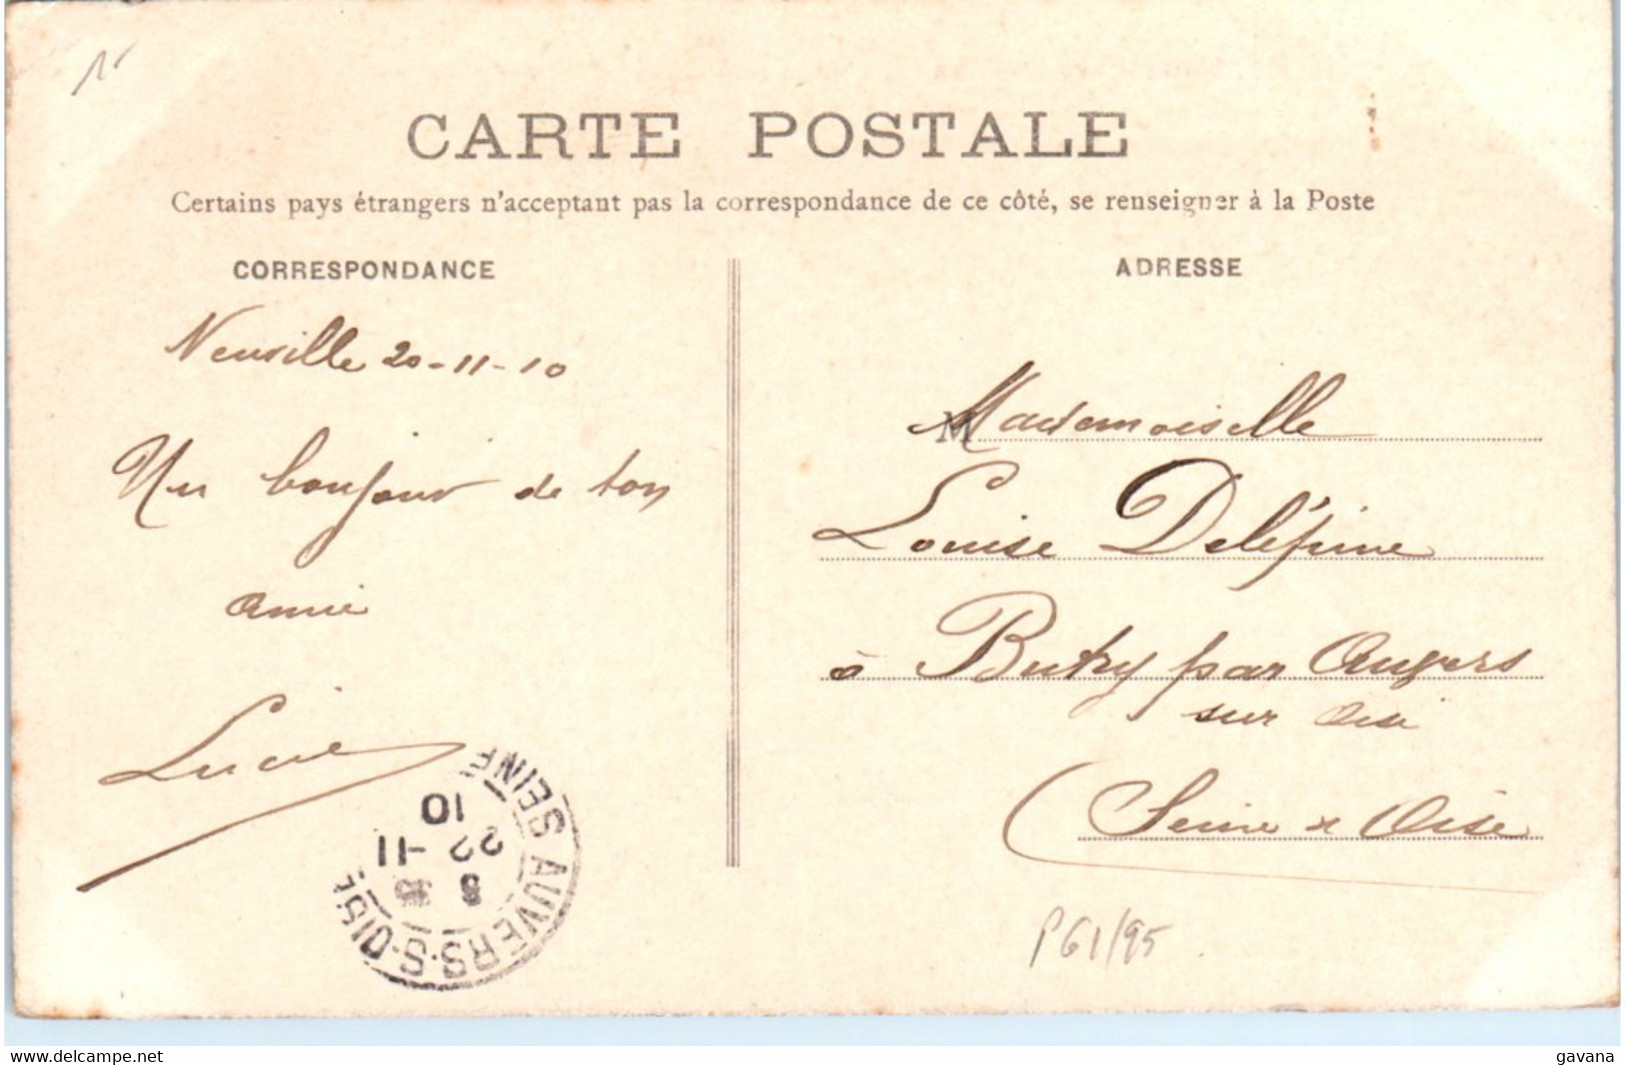 15
CARTE POSTALE
Certains pays étrangers n'acceptant pas la correspondance de ce côté, se renseigner à la Poste
CORRESPONDANCE
Neuville 20-11-10
Un bonjour de ton
amie
Lucie
ADRESSE
M
Mademoiselle
Louise Delépine
à Butry par Auvers
sur Oise
(Seine & Oise
AUVERS-S-OISE SEINE
8
22 -11
10
PG1/95
www.delcampe.net
gavana